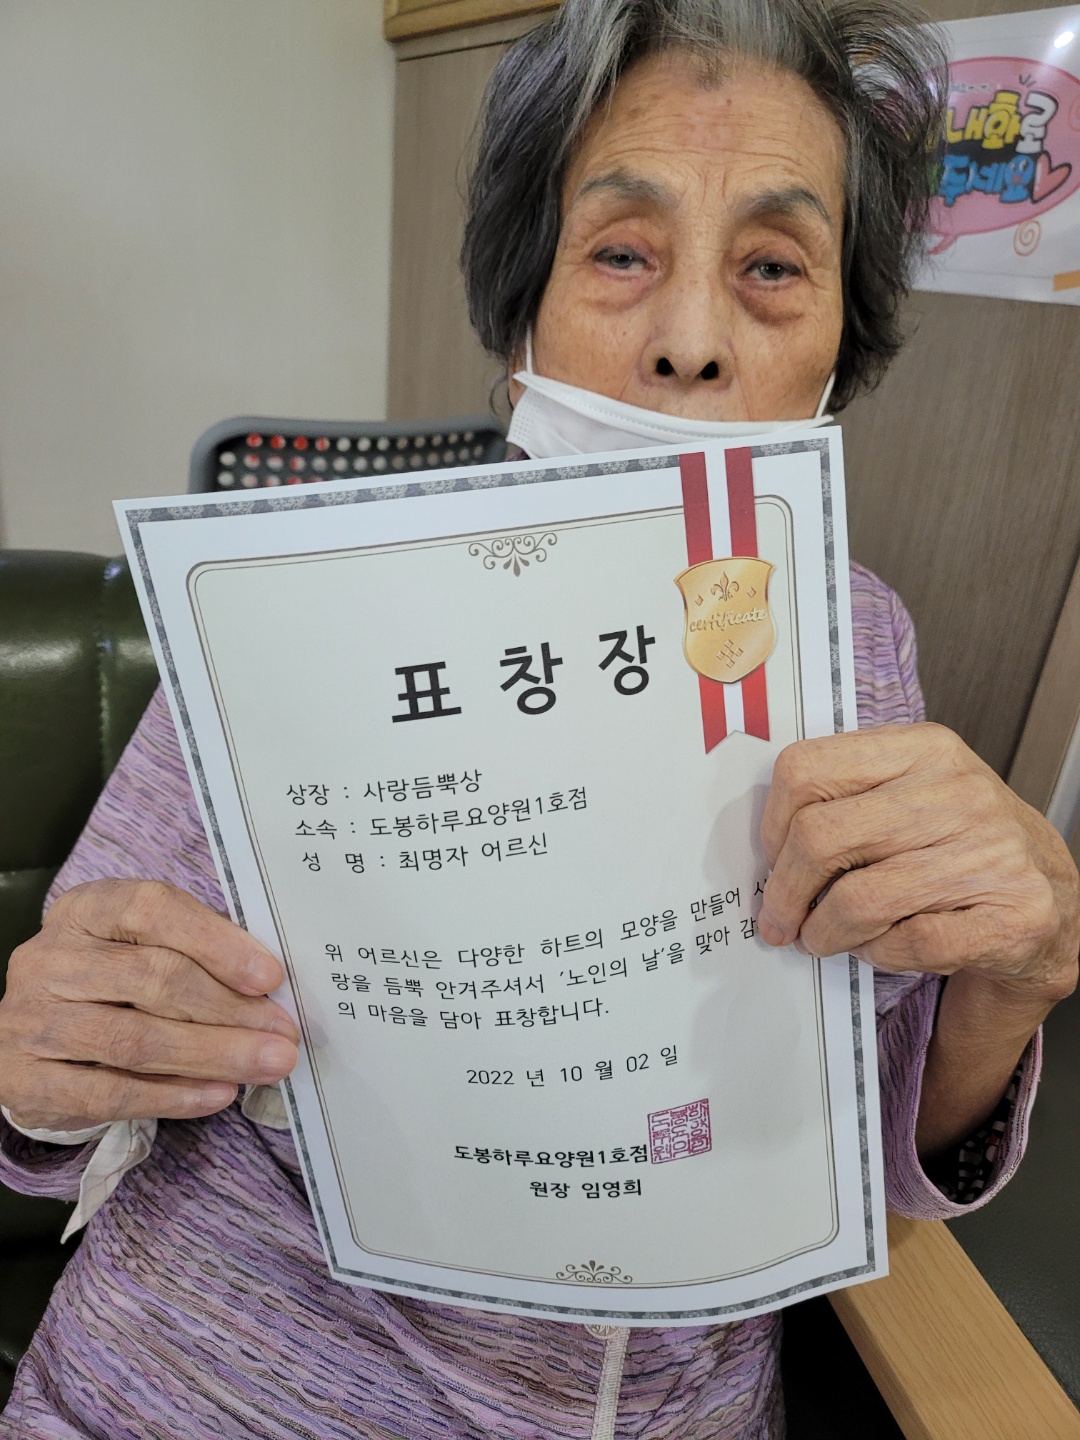 내화로
주세요
certificate
표 창 장
상장 : 사랑듬뿍상
소속 : 도봉하루요양원1호점
성 명 : 최명자 어르신
위 어르신은 다양한 하트의 모양을 만들어
랑을 듬뿍 안겨주셔서 '노인의 날'을 맞아 감
의 마음을 담아 표창합니다.
2022 년 10 월 02 일
도봉하루요양원1호점
원장 임영희